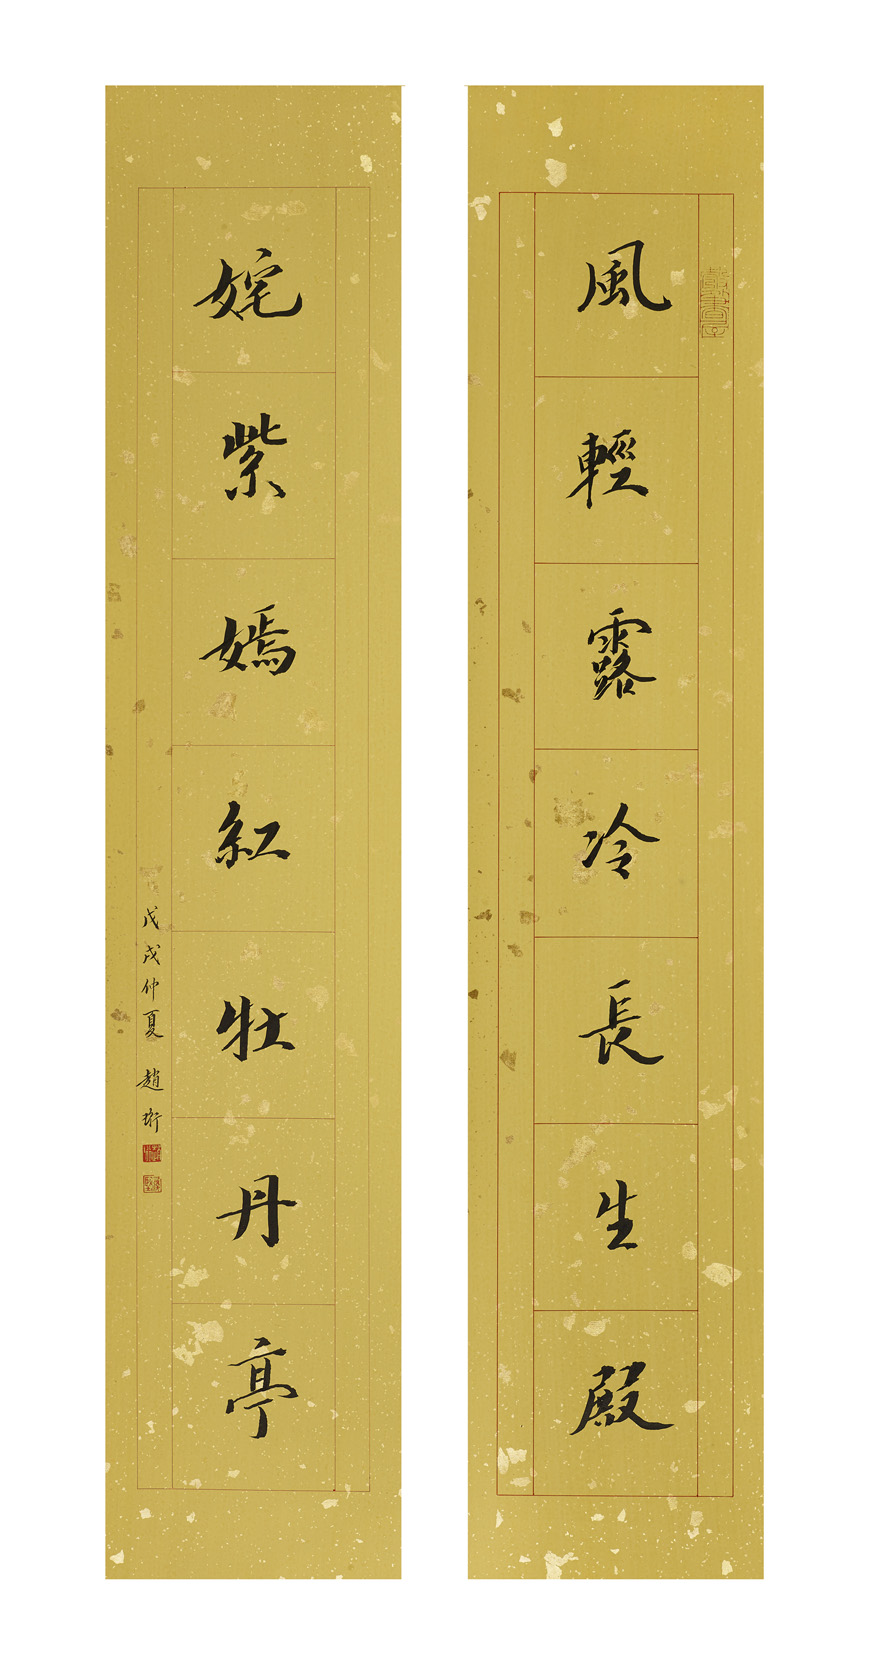 風輕露冷長生殿
姹紫嫣紅牡丹亭
戊戌仲夏 趙珩